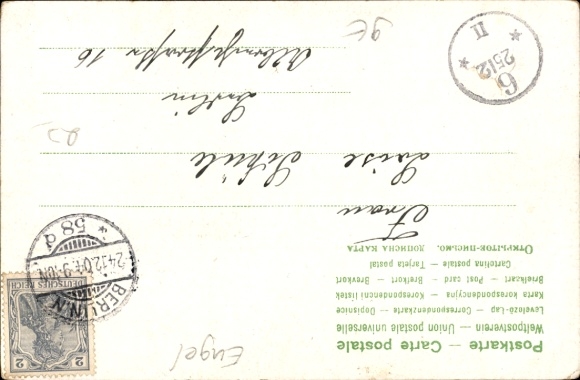 Postkarte — Carte postale
Weltpostverein — Union postale universelle
Levelező-Lap — Correspondenzkarte — Dopisnice
Karta korespondencyjna — Korespondenční lístek
Brefkaart — Post card — Briefkort — Brevkort
Cartolina postale — Tarjeta postal
ОТКРЫТОЕ ПИСЬМО. ДОПИСНА КАРТА
Frau
Luise Schüle
Berlin
16
Engel
BERLIN.N.
24.12.04. 9-10N
* 58 d
DEUTSCHES REICH
2
2
6
* 2512 *
II